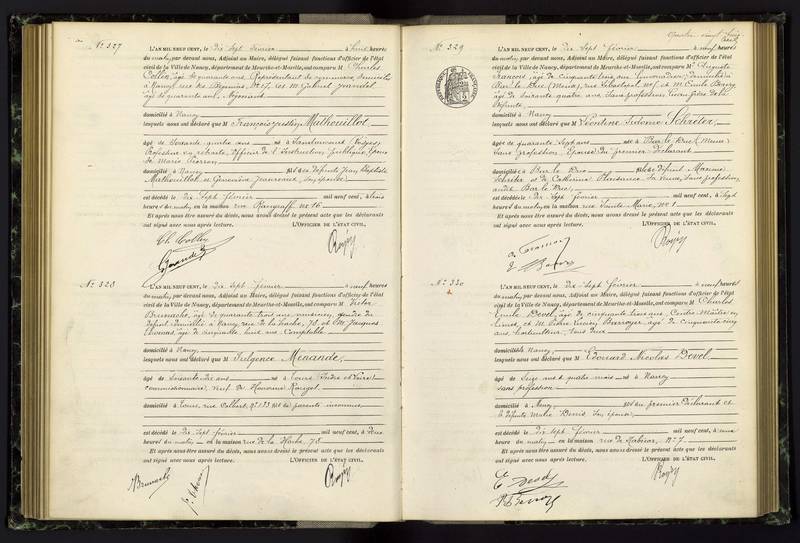 N° 327
L'AN MIL NEUF CENT, le dix sept février à huit heures
du matin, par devant nous, Adjoint au Maire, délégué faisant fonctions d'officier de l'état
civil de la Ville de Nancy, département de Meurthe-et-Moselle, ont comparu M Charles
Collin, âgé de quarante ans, Représentant de commerce domicilié
à Nancy, rue des et M. Gabriel
âgé de quarante ans, Négociant
domicilié à Nancy
lesquels nous ont déclaré que M François Justin Mathouillot,
âgé de Soixante quatre ans né à (Vosges)
Professeur en retraite, Officier de l'Instruction publique, époux
de Marie Pierron
domicilié à Nancy fils de défunts Jean Baptiste
Mathouillot et Geneviève son épouse
est décédé le dix Sept février mil neuf cent, à trois
heures du matin, en la maison rue N° 16
Et après nous être assuré du décès, nous avons dressé le présent acte que les déclarants
ont signé avec nous après lecture. L'OFFICIER DE L'ÉTAT CIVIL,
N° 328
L'AN MIL NEUF CENT, le dix Sept février à neuf heures
du matin, par devant nous, Adjoint au Maire, délégué faisant fonctions d'officier de l'état
civil de la Ville de Nancy, département de Meurthe-et-Moselle, ont comparu M Victor
Brunache, âgé de quarante trois ans, musicien, gendre du
défunt domicilié à Nancy, rue de la hache, 78 et M. Jacques
Thomas âgé de cinquante huit ans Comptable
domicilié à Nancy
lesquels nous ont déclaré que M Fulgence Menande,
âgé de Soixante dix ans né à Tours (Indre et Loire)
commissionnaire, Veuf de Honorine
domicilié à Tours, rue Colbert, N° 133 fils de parents inconnus
est décédé le dix Sept février mil neuf cent, à deux
heures du matin, en la maison rue de la Hache, 78
Et après nous être assuré du décès, nous avons dressé le présent acte que les déclarants
ont signé avec nous après lecture. L'OFFICIER DE L'ÉTAT CIVIL,
Brunache
N° 329
L'AN MIL NEUF CENT, le dix Sept février à neuf heures
du matin, par devant nous, Adjoint au Maire, délégué faisant fonctions d'officier de l'état
civil de la Ville de Nancy, département de Meurthe-et-Moselle, ont comparu M Auguste
François, âgé de Cinquante trois ans, limonadier, domicilié à
Bar le Duc (Meuse), rue et M. Emile
âgé de Soixante quatre ans, Sans profession, de la
défunte,
domicilié à Nancy
lesquels nous ont déclaré que M Léontine Sidonie Schréter,
âgée de quarante Sept ans née à Bar le Duc (Meuse)
Sans profession, épouse du premier déclarant
domiciliée à Bar le Duc fille de défunt Maxime
Schréter et de Catherine Sa veuve, Sans profession,
audit Bar le Duc,
est décédée le dix Sept février mil neuf cent, à Sept
heures du matin, en la maison rue Sainte Marie, N° 1
Et après nous être assuré du décès, nous avons dressé le présent acte que les déclarants
ont signé avec nous après lecture. L'OFFICIER DE L'ÉTAT CIVIL,
N° 330
L'AN MIL NEUF CENT, le dix Sept février à neuf heures
du matin, par devant nous, Adjoint au Maire, délégué faisant fonctions d'officier de l'état
civil de la Ville de Nancy, département de Meurthe-et-Moselle, ont comparu M Charles
Emile Devel, âgé de cinquante trois ans, Contre-Maître en
et M. âgé de Cinquante cinq
ans, tous deux
domiciliés à Nancy
lesquels nous ont déclaré que M Edouard Nicolas Devel,
âgé de Seize ans et quatre mois né à Nancy
sans profession
domicilié à Nancy fils du premier déclarant et
de défunte Marie Denis, son épouse
est décédé le dix Sept février mil neuf cent, à une
heure du matin, en la maison rue de N° 7
Et après nous être assuré du décès, nous avons dressé le présent acte que les déclarants
ont signé avec nous après lecture. L'OFFICIER DE L'ÉTAT CIVIL,